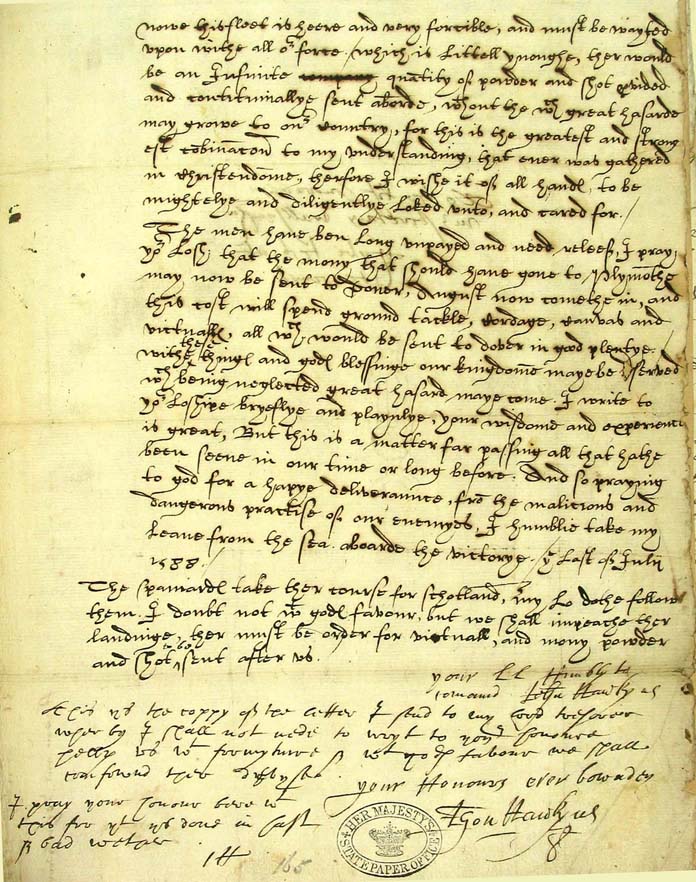 nowe his fleet is heere and very forcible, and must be wayted
vpon withe all or force, which is littell ynoughe, ther would
be an Infinite quãtity of powder and shot pvided
and contitinuallye sent aborde, wthout the wch great hasarde
may growe to our country, for this is the greatest and strong
est cõbinacon to my vnderstanding, that ever was gathered
in christendome, therfore I wishe it of all hands to be
mightelye and diligentlye loked vnto, and cared for.
The men have ben long vnpayed and need releef, I pray
yor Losp that the mony that should have gone to Plymothe
may now be sent to Dover, August now comethe in, and
this cost will spend ground tackle, cordage, canvas and
victualls, all wch would be sent to dover in good plentye.
withe these things and gods blessinge our kingdome maye be pserved
wch being neglected great hasard maye come. I write to
yor Loshipe bryeflye and playnlye, your wisdome and experience
is great, But this is a matter far passing all that hathe
been seene in our time or long before. And so praying
to god for a happye deliveraunce, frõ the malicious and
dangerous practise of our enemyes, I humblie take my
leave from the sea. aboarde the victorye. ye last of Julii
1588.
The spaniards take ther course for schotland, my Lo dothe follow
them. I doubt not wt gods favour, but we shall impeache ther
landinge, ther must be order for victuall, and mony powder
and shot to be sent after vs.
your LL humbly to
comaund John Hawkyns
this ys the coppy of the letter I send to my lord tresorer
wher by I shall not nede to wryt to your honour
helpe vs wt furnyture & wt gods favour we shall
confound ther
your Honours ever bownden
I pray your honour bere wt
this for yt ys done in hast
& bad wether
John Hawkyns
JH
165
HER MAJESTY'S
STATE PAPER OFFICE